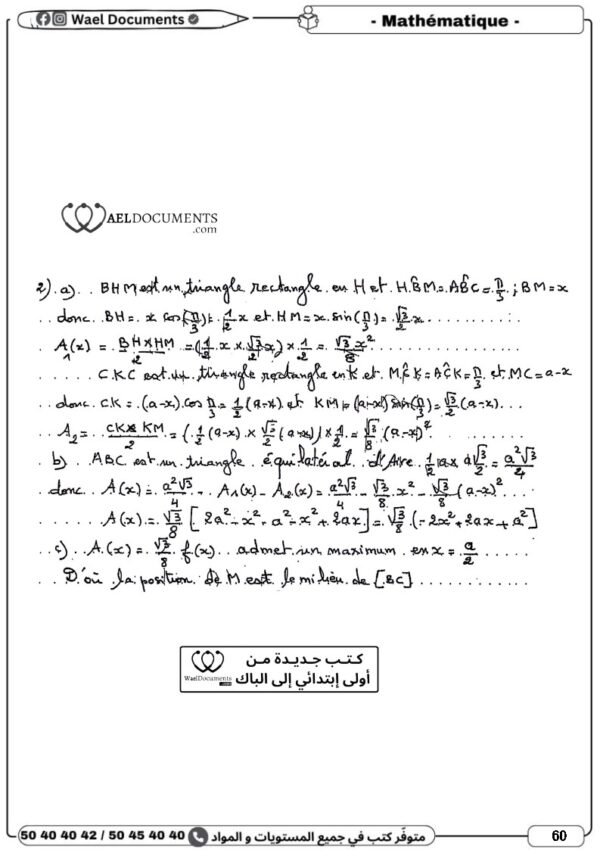 Wael Documents
- Mathématique -
WAELDOCUMENTS
.com
2) a) . . BHM est un triangle rectangle en H et HB̂M = AB̂C = π/3 ; BM = x
. . donc BH = x cos(π/3) = 1/2 x et HM = x sin(π/3) = √3/2 x
. A₁(x) = BH×HM/2 = (1/2 x × √3/2 x) × 1/2 = √3/8 x²
. . . . CKC est un triangle rectangle en K et MĈK = AĈK = π/3 et MC = a-x
. donc CK = (a-x) cos π/3 = 1/2 (a-x) et KM = (a-x) sin(π/3) = √3/2 (a-x) . . .
. . A₂ = CK × KM/2 = (1/2 (a-x) × √3/2 (a-x)) × 1/2 = √3/8 (a-x)²
. b) . ABC est un triangle équilatéral d'Aire 1/2 a × a√3/2 = a²√3/4
. donc A(x) = a²√3/4 - A₁(x) - A₂(x) = a²√3/4 - √3/8 x² - √3/8 (a-x)²
. . . . . A(x) = √3/8 [2a² - x² - a² - x² + 2ax] = √3/8 (-2x² + 2ax + a²)
. c) . A(x) = √3/8 f(x) . . admet un maximum en x = a/2 . . . . .
. . D'où la position de M est le milieu de [BC] . . . . . . . . . .
كتب جديدة من
أولى إبتدائي إلى الباك
WaelDocuments
.com
50 40 40 42 / 50 45 40 40 متوفّر كتب في جميع المستويات و المواد
60